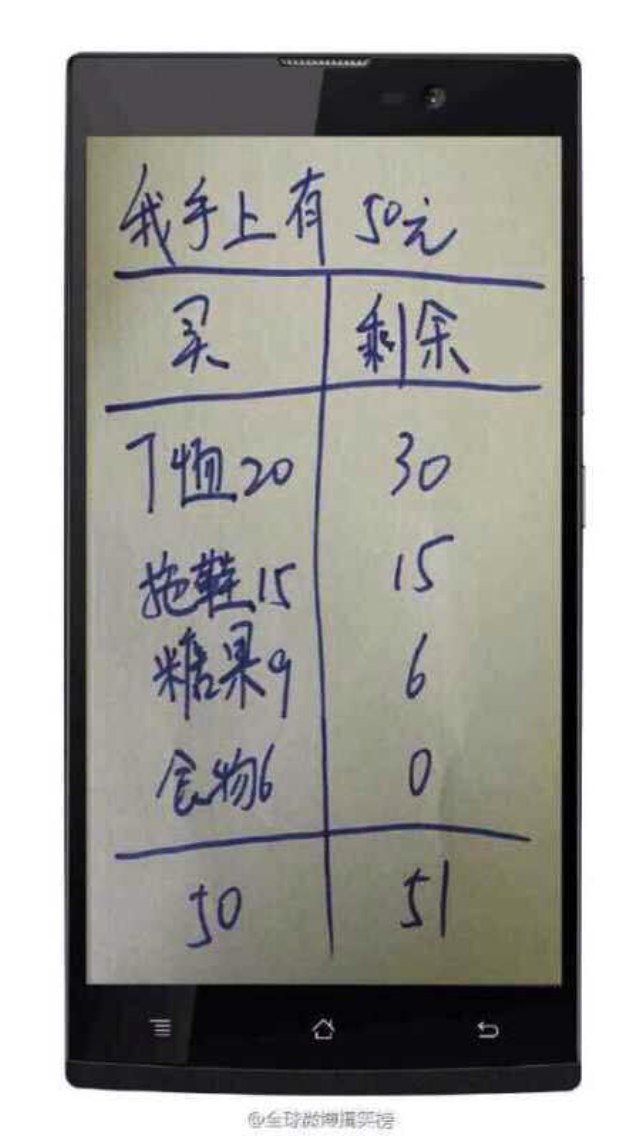 我手上有 50元
买 剩余
T恤20 30
拖鞋15 15
糖果9 6
食物6 0
50 51
@全球微博搞笑榜